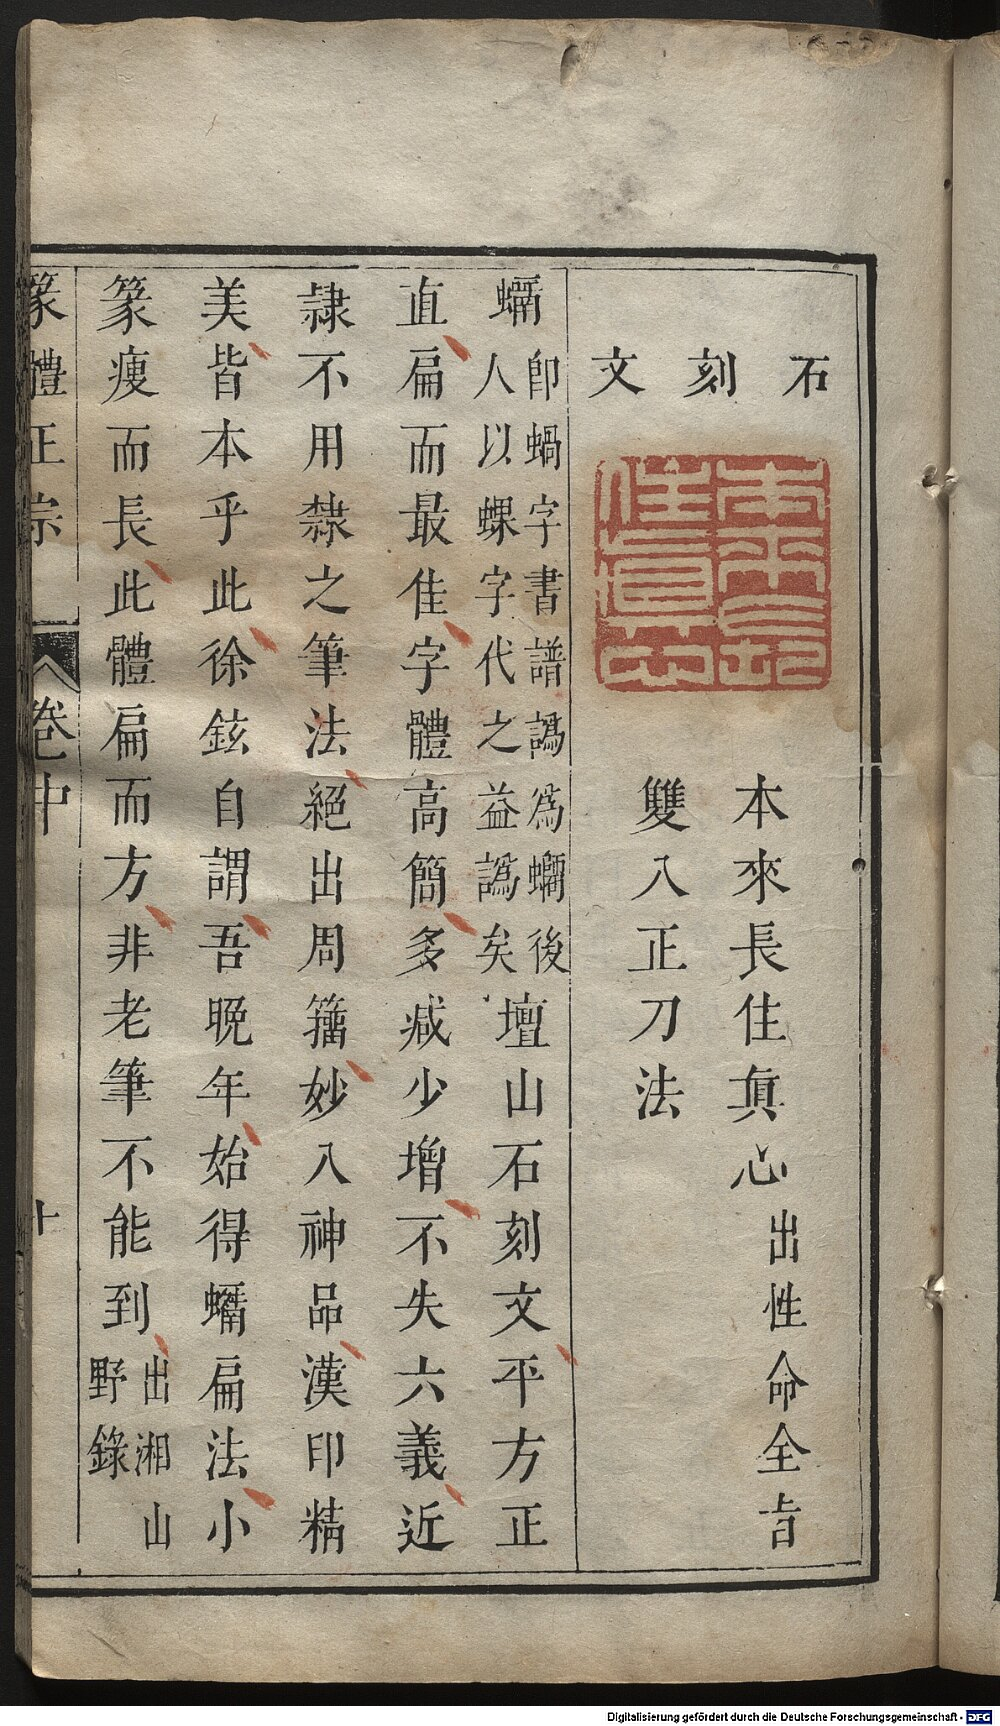 石刻文
本來長住眞心出性命全旨
雙入正刀法
卽蝸字書譜譌爲後
人以螺字代之益譌矣
壇山石刻文平方正
直扁而最佳字體高簡多減少增不失六義近
隷不用隷之筆法絕出周籀妙入神品漢印精
美皆本乎此徐鉉自謂吾晚年始得扁法小
篆瘦而長此體扁而方非老筆不能到
出湘山
野錄
篆體正宗
卷中
十
Digitalisierung gefördert durch die Deutsche Forschungsgemeinschaft - DFG